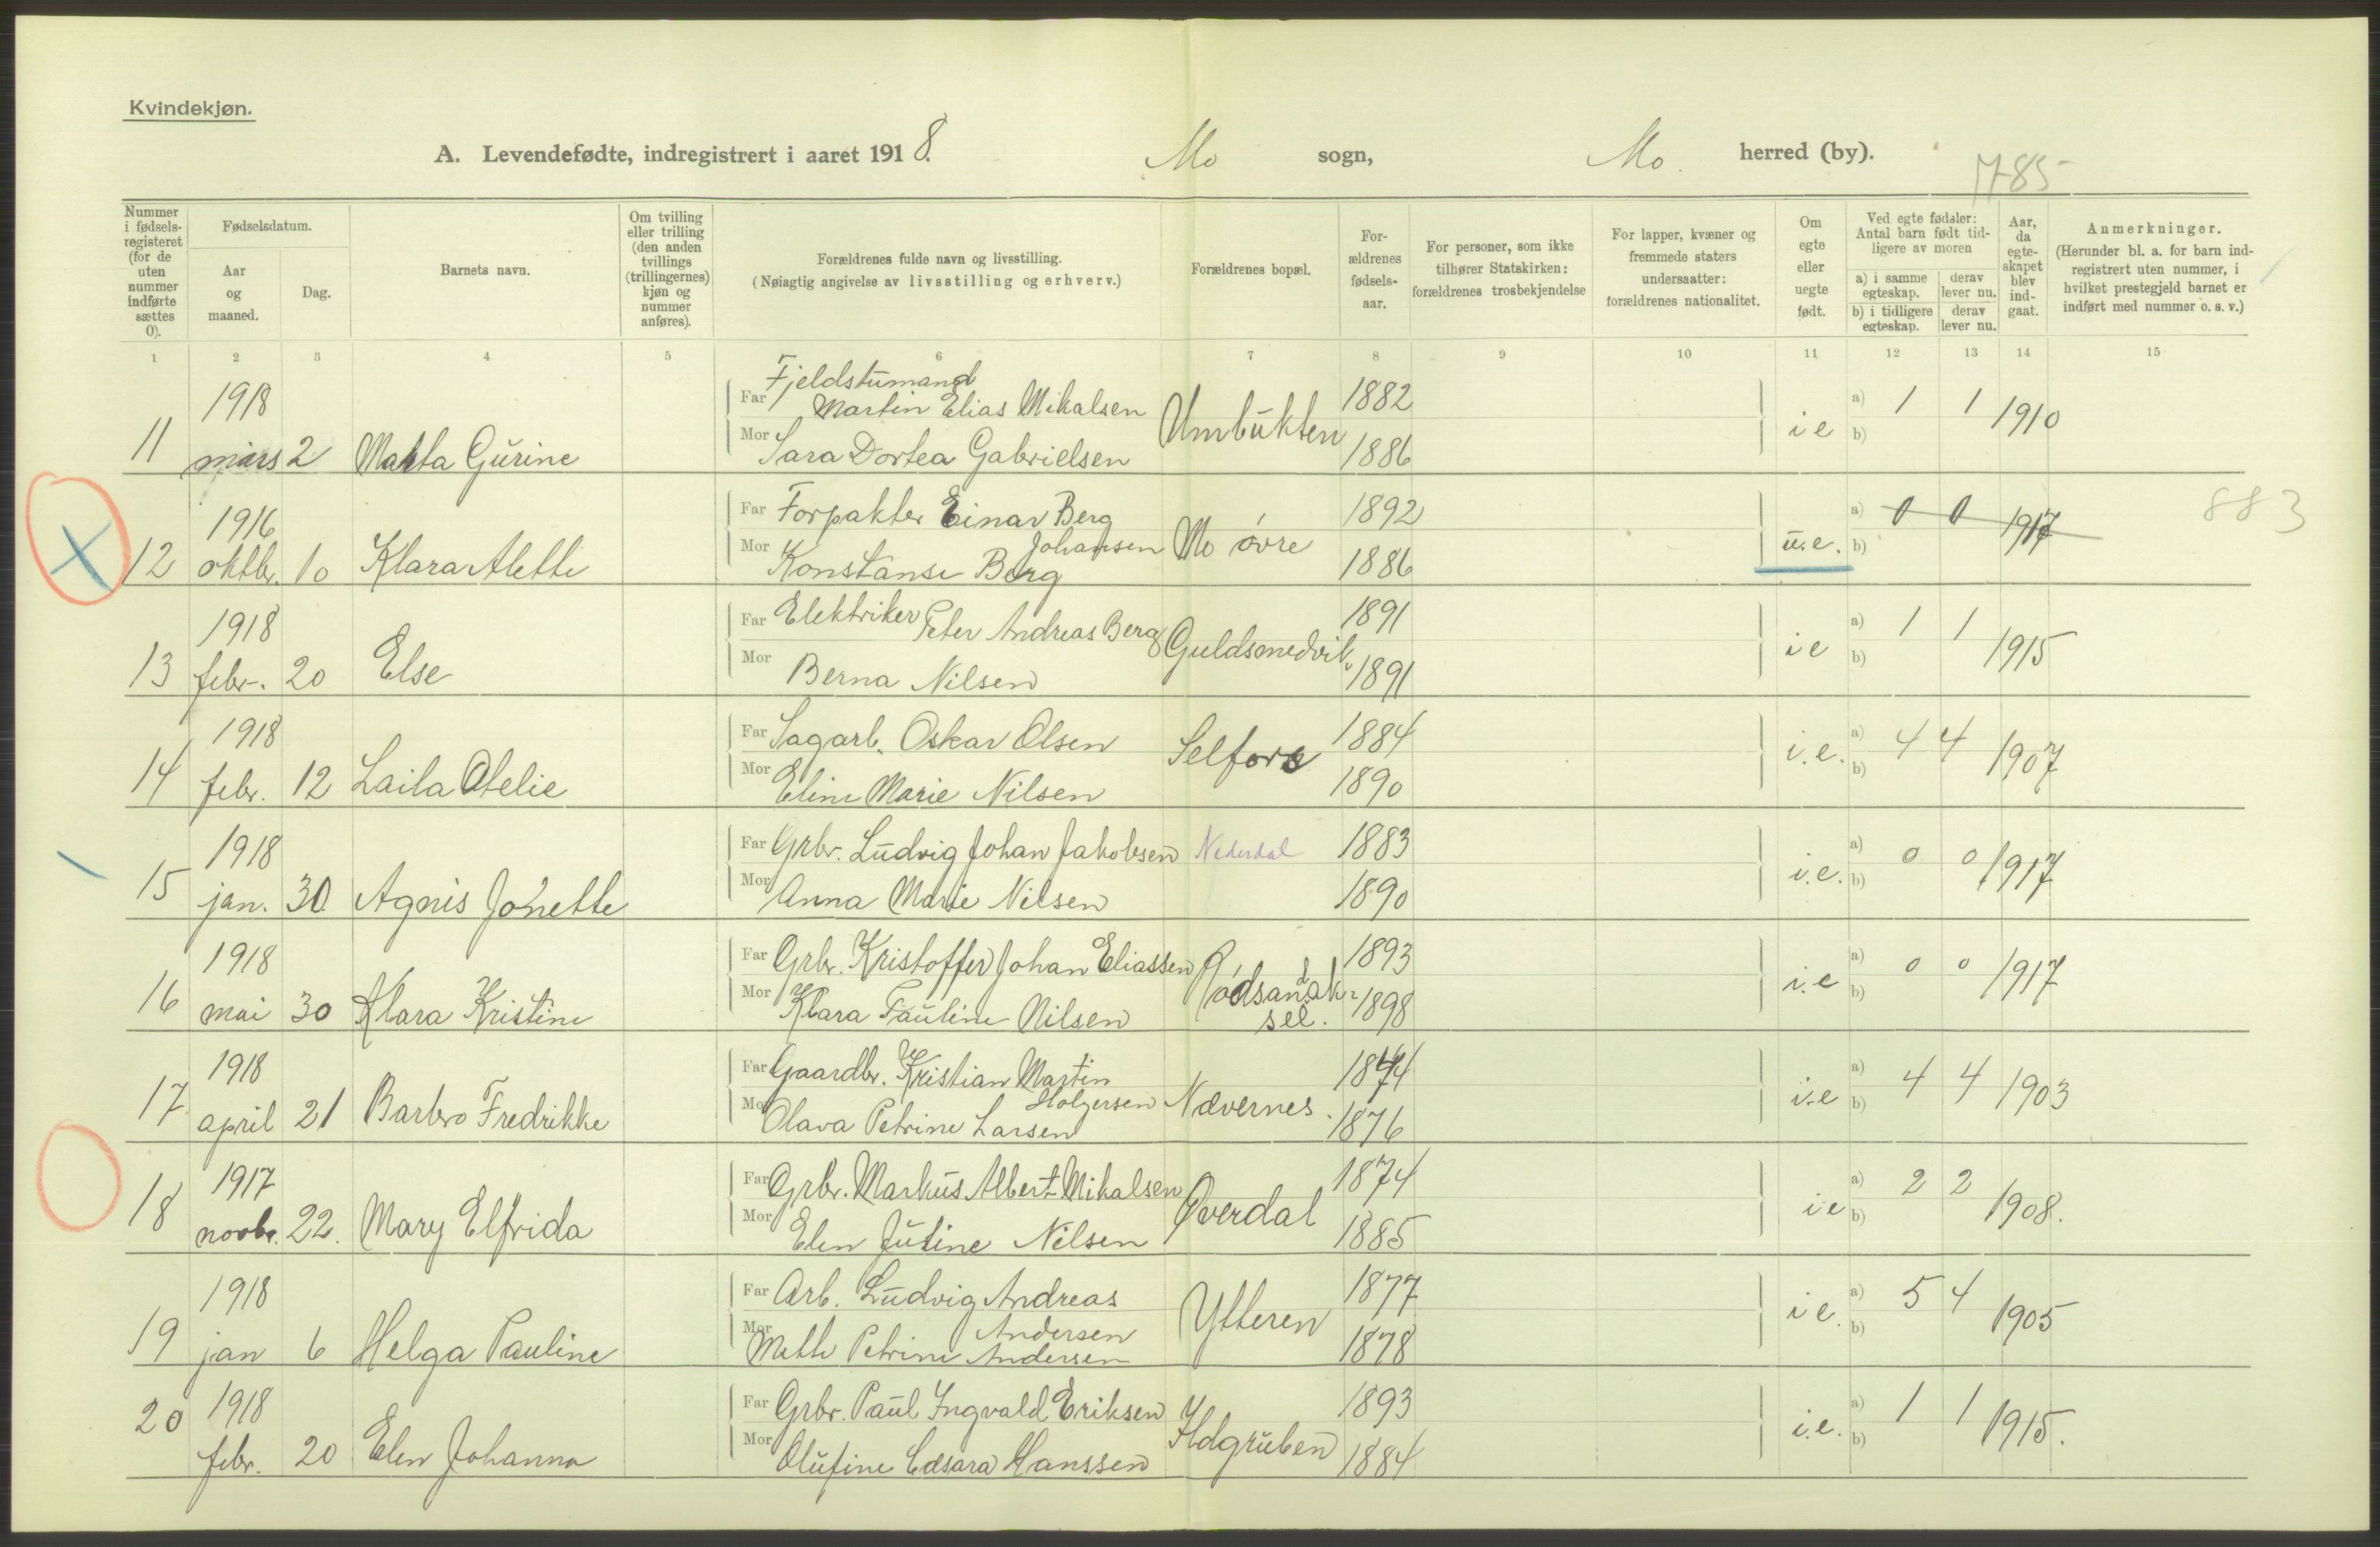 Kvindekjøn.
A. Levendefødte, indregistrert i aaret 1918. Mo sogn, Mo herred (by).
1785
Nummer i fødsels-registeret (for de uten nummer indførte sættes 0).
Fødselsdatum.
Aar og maaned.
Dag.
Barnets navn.
Om tvilling eller trilling (den anden tvillings (trillingernes) kjøn og nummer anføres).
Forældrenes fulde navn og livsstilling.
(Nøiagtig angivelse av livsstilling og erhverv.)
Forældrenes bopæl.
For-ældrenes fødsels-aar.
For personer, som ikke tilhører Statskirken: forældrenes trosbekjendelse
For lapper, kvæner og fremmede staters undersaatter: forældrenes nationalitet.
Om egte eller uegte født.
Ved egte fødsler: Antal barn født tid-ligere av moren
a) i samme egteskap. derav lever nu.
b) i tidligere egteskap. derav lever nu.
Aar, da egte-skapet blev ind-gaat.
Anmerkninger.
(Herunder bl. a. for barn ind-registrert uten nummer, i hvilket prestegjeld barnet er indført med nummer o. s. v.)
1 2 3 4 5 6 7 8 9 10 11 12 13 14 15
1918 Far Fjeldstumand Martin Elias Mikalsen 1882 a) 1 1
11 mars 2 Marta Gurine Mor Sara Dortea Gabrielsen Umbukten 1886 i e b) 1910
1916 Far Forpakter Einar Berg 1892 a) 0 0 883
Johansen
12 oktbr. 10 Klara Alette Mor Konstanse Berg Mo øvre 1886 u.e. b) 1917
1918 Far Elektriker Peter Andreas Berg 1891 a) 1 1
13 febr. 20 Else Mor Berna Nilsen Guldsmedvik 1891 i e b) 1915
1918 Far Sagarb. Oskar Olsen 1884 a) 4 4
14 febr. 12 Laila Otelie Mor Eline Marie Nilsen Selfors 1890 i.e. b) 1907
1918 Far Grbr. Ludvig Johan Jakobsen Nederdal 1883 a) 0 0
15 jan. 30 Agnis Jonette Mor Anna Marie Nilsen 1890 i.e. b) 1917
1918 Far Grbr. Kristoffer Johan Eliassen 1893 a) 0 0
16 mai 30 Klara Kristine Mor Klara Pauline Nilsen 1898 i.e b) 1917
1918 Far Gaardbr. Kristian Martin Holgersen 1874 a) 4 4
17 april 21 Barbro Fredrikke Mor Olava Petrine Larsen Nævernes. 1876 i.e b) 1903
1917 Far Grbr. Markus Albert Mikalsen 1874 a) 2 2
18 novbr. 22. Mary Elfrida Mor Elen Jutine Nilsen Øverdal 1885 i e b) 1908.
1918 Far Arb. Ludvig Andreas Andersen 1877 a) 5 4
19 jan 6 Helga Pauline Mor Mette Petrine Andersen Ytteren 1878 i e. b) 1905
20 1918 Far Grbr. Paul Ingvald Eriksen 1893 a) 1 1
febr. 20 Elen Johanna Mor Olufine Cæsara Hanssen Ildgruben 1884 i.e. b) 1915.